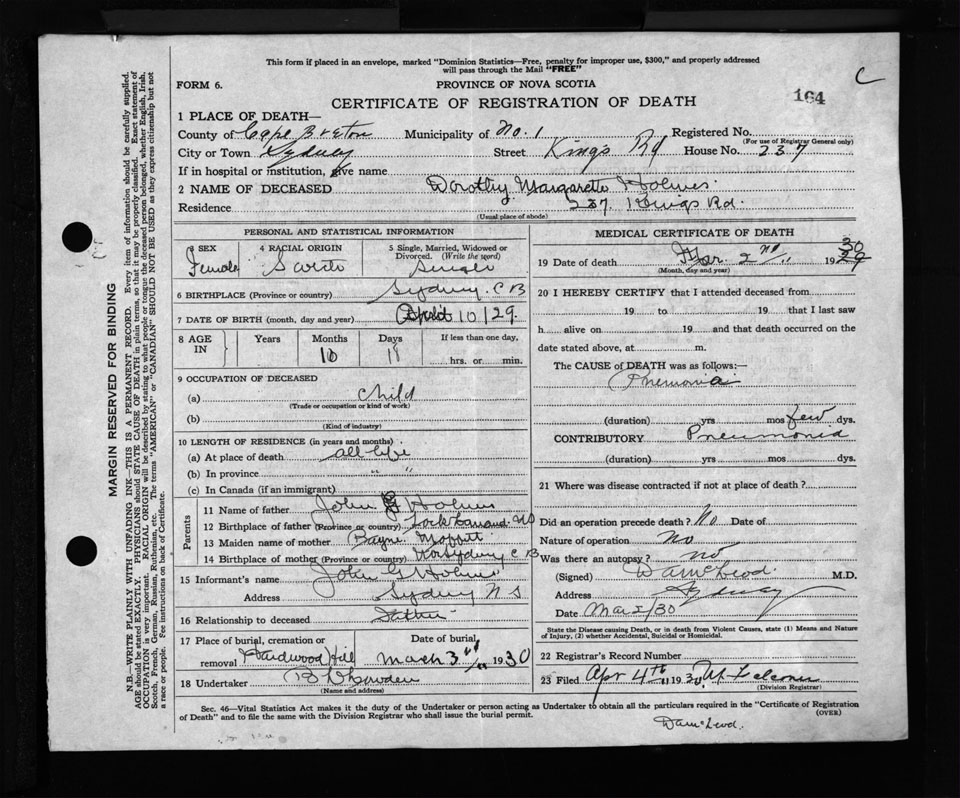 This form if placed in an envelope, marked "Dominion Statistics—Free, penalty for improper use, $300," and properly addressed
will pass through the Mail "FREE"
C
FORM 6.
PROVINCE OF NOVA SCOTIA
164
CERTIFICATE OF REGISTRATION OF DEATH
1 PLACE OF DEATH—
County of Cape Breton Municipality of No. 1 Registered No.
(For use of Registrar General only)
City or Town Sydney Street Kings Rd House No. 237
If in hospital or institution, give name
2 NAME OF DECEASED Dorothy Margarette Holmes
Residence 237 Kings Rd.
(Usual place of abode)
PERSONAL AND STATISTICAL INFORMATION
3 SEX 4 RACIAL ORIGIN 5 Single, Married, Widowed or
Divorced. (Write the word)
Female Single
6 BIRTHPLACE (Province or country) Sydney. C B
7 DATE OF BIRTH (month, day and year) April 10/29.
8 AGE IN Years Months Days If less than one day,
10 18 hrs. or min.
9 OCCUPATION OF DECEASED
(a) child
(Trade or occupation or kind of work)
(b)
(Kind of industry)
10 LENGTH OF RESIDENCE (in years and months)
(a) At place of death all life
(b) In province " "
(c) In Canada (if an immigrant)
Parents
11 Name of father John G Holmes
12 Birthplace of father (Province or country) NS
13 Maiden name of mother Moffitt
14 Birthplace of mother (Province or country) Nor Sydney C B
15 Informant's name John G Holmes
Address Sydney N S
16 Relationship to deceased Father
17 Place of burial, cremation or Date of burial
removal Hardwood Hill March 3rd 1930
18 Undertaker
(Name and address)
MEDICAL CERTIFICATE OF DEATH
19 Date of death Mar. 2nd 1929 30
(Month, day and year)
20 I HEREBY CERTIFY that I attended deceased from
19 to 19 that I last saw
h alive on 19 and that death occurred on the
date stated above, at m.
The CAUSE of DEATH was as follows:—
Pnemonia
(duration) yrs mos few dys.
CONTRIBUTORY Pneumonia
(duration) yrs mos dys.
21 Where was disease contracted if not at place of death?
Did an operation precede death? No Date of
Nature of operation No
Was there an autopsy? no
(Signed) D A McLeod. M.D.
Address Sydney
Date Mar 2/30
State the Disease causing Death, or in death from Violent Causes, state (1) Means and Nature
of Injury, (2) whether Accidental, Suicidal or Homicidal.
22 Registrar's Record Number
23 Filed Apr 4th 1930.
(Division Registrar)
Sec. 46—Vital Statistics Act makes it the duty of the Undertaker or person acting as Undertaker to obtain all the particulars required in the "Certificate of Registration
of Death" and to file the same with the Division Registrar who shall issue the burial permit.
(OVER)
D A McLeod.
MARGIN RESERVED FOR BINDING
N.B.—WRITE PLAINLY WITH UNFADING INK—THIS IS A PERMANENT RECORD. Every item of information should be carefully supplied.
AGE should be stated EXACTLY. PHYSICIANS should STATE CAUSE OF DEATH in plain terms, so that it may be properly classified. Exact statement of
OCCUPATION is very important. RACIAL ORIGIN will be described by stating to what people or tongue the deceased person belonged, whether English, Irish,
Scotch, French, German, Russian, Ruthenian, etc. The terms "AMERICAN" or "CANADIAN" SHOULD NOT BE USED as they express citizenship but not
a race or people. Fee instructions on back of Certificate.